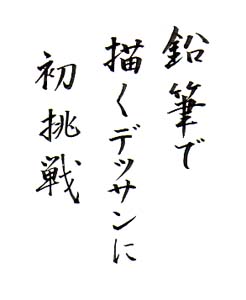 鉛筆で
描くデッサンに
初挑戦